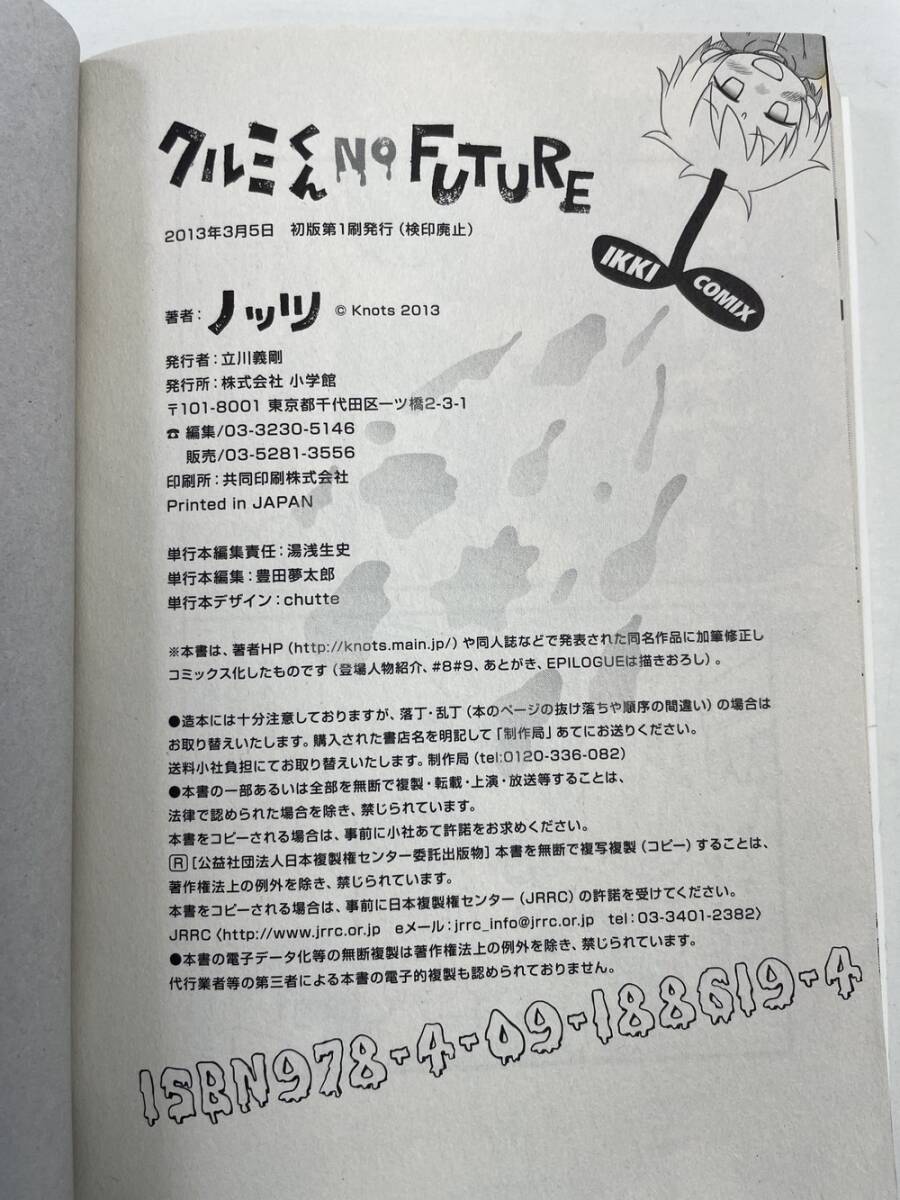 クルミくん NO FUTURE
2013年3月5日 初版第1刷発行(検印廃止)
IKKI COMIX
著者:ノッツ © Knots 2013
発行者:立川義剛
発行所:株式会社 小学館
〒101-8001 東京都千代田区一ツ橋2-3-1
☎ 編集/03-3230-5146
販売/03-5281-3556
印刷所:共同印刷株式会社
Printed in JAPAN
単行本編集責任:湯浅生史
単行本編集:豊田夢太郎
単行本デザイン:chutte
※本書は、著者HP(http://knots.main.jp/)や同人誌などで発表された同名作品に加筆修正し
コミックス化したものです(登場人物紹介、#8#9、あとがき、EPILOGUEは描きおろし)。
●造本には十分注意しておりますが、落丁・乱丁(本のページの抜け落ちや順序の間違い)の場合は
お取り替えいたします。購入された書店名を明記して「制作局」あてにお送りください。
送料小社負担にてお取り替えいたします。制作局(tel:0120-336-082)
●本書の一部あるいは全部を無断で複製・転載・上演・放送等することは、
法律で認められた場合を除き、禁じられています。
本書をコピーされる場合は、事前に小社あて許諾をお求めください。
Ⓡ[公益社団法人日本複製権センター委託出版物]本書を無断で複写複製(コピー)することは、
著作権法上の例外を除き、禁じられています。
本書をコピーされる場合は、事前に日本複製権センター(JRRC)の許諾を受けてください。
JRRC〈http://www.jrrc.or.jp eメール:jrrc_info@jrrc.or.jp tel:03-3401-2382〉
●本書の電子データ化等の無断複製は著作権法上の例外を除き、禁じられています。
代行業者等の第三者による本書の電子的複製も認められておりません。
ISBN978-4-09-188619-4